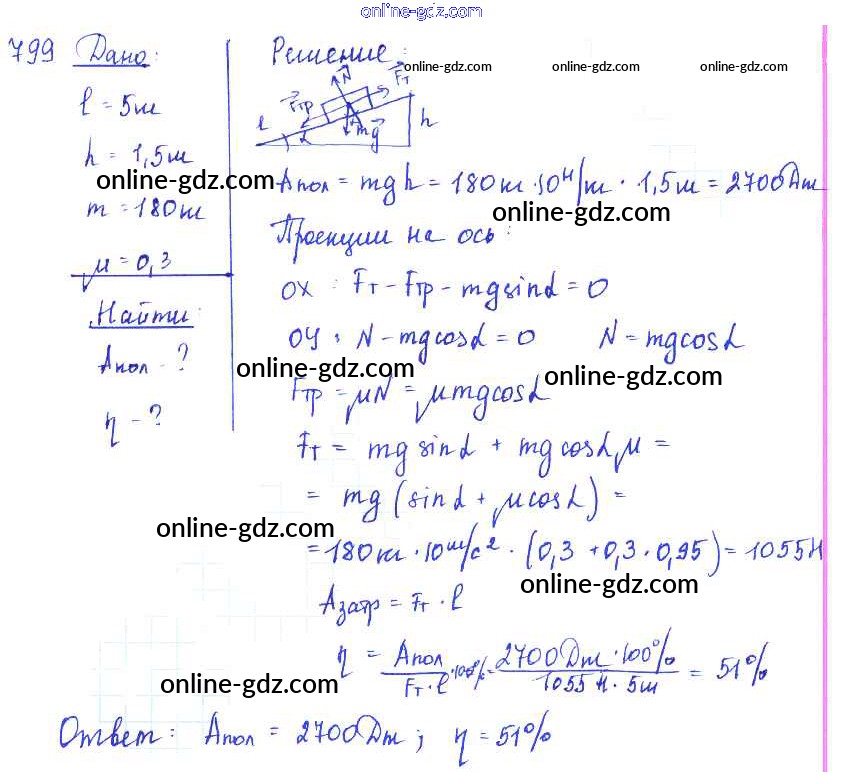 online-gdz.com
799 Дано:
l = 5м
h = 1,5м
online-gdz.com
m = 180кг
μ = 0,3
Найти:
Aпол - ?
η - ?
Решение:
online-gdz.com online-gdz.com online-gdz.com
N Fт
Fтр
l α mg h
Aпол = mgh = 180кг · 10 Н/кг · 1,5м = 2700Дж
online-gdz.com
Проекции на ось:
OX : Fт - Fтр - mg sinα = 0
OY : N - mg cosα = 0 N = mg cosα
online-gdz.com online-gdz.com
Fтр = μN = μmg cosα
Fт = mg sinα + mg cosα μ =
= mg (sinα + μ cosα) =
online-gdz.com
= 180кг · 10м/с² · (0,3 + 0,3 · 0,95) = 1055Н
online-gdz.com
Aзатр = Fт · l
η = Aпол / Fт · l · 100% = 2700Дж · 100% / 1055 Н · 5м = 51%
online-gdz.com
Ответ: Aпол = 2700Дж; η = 51%